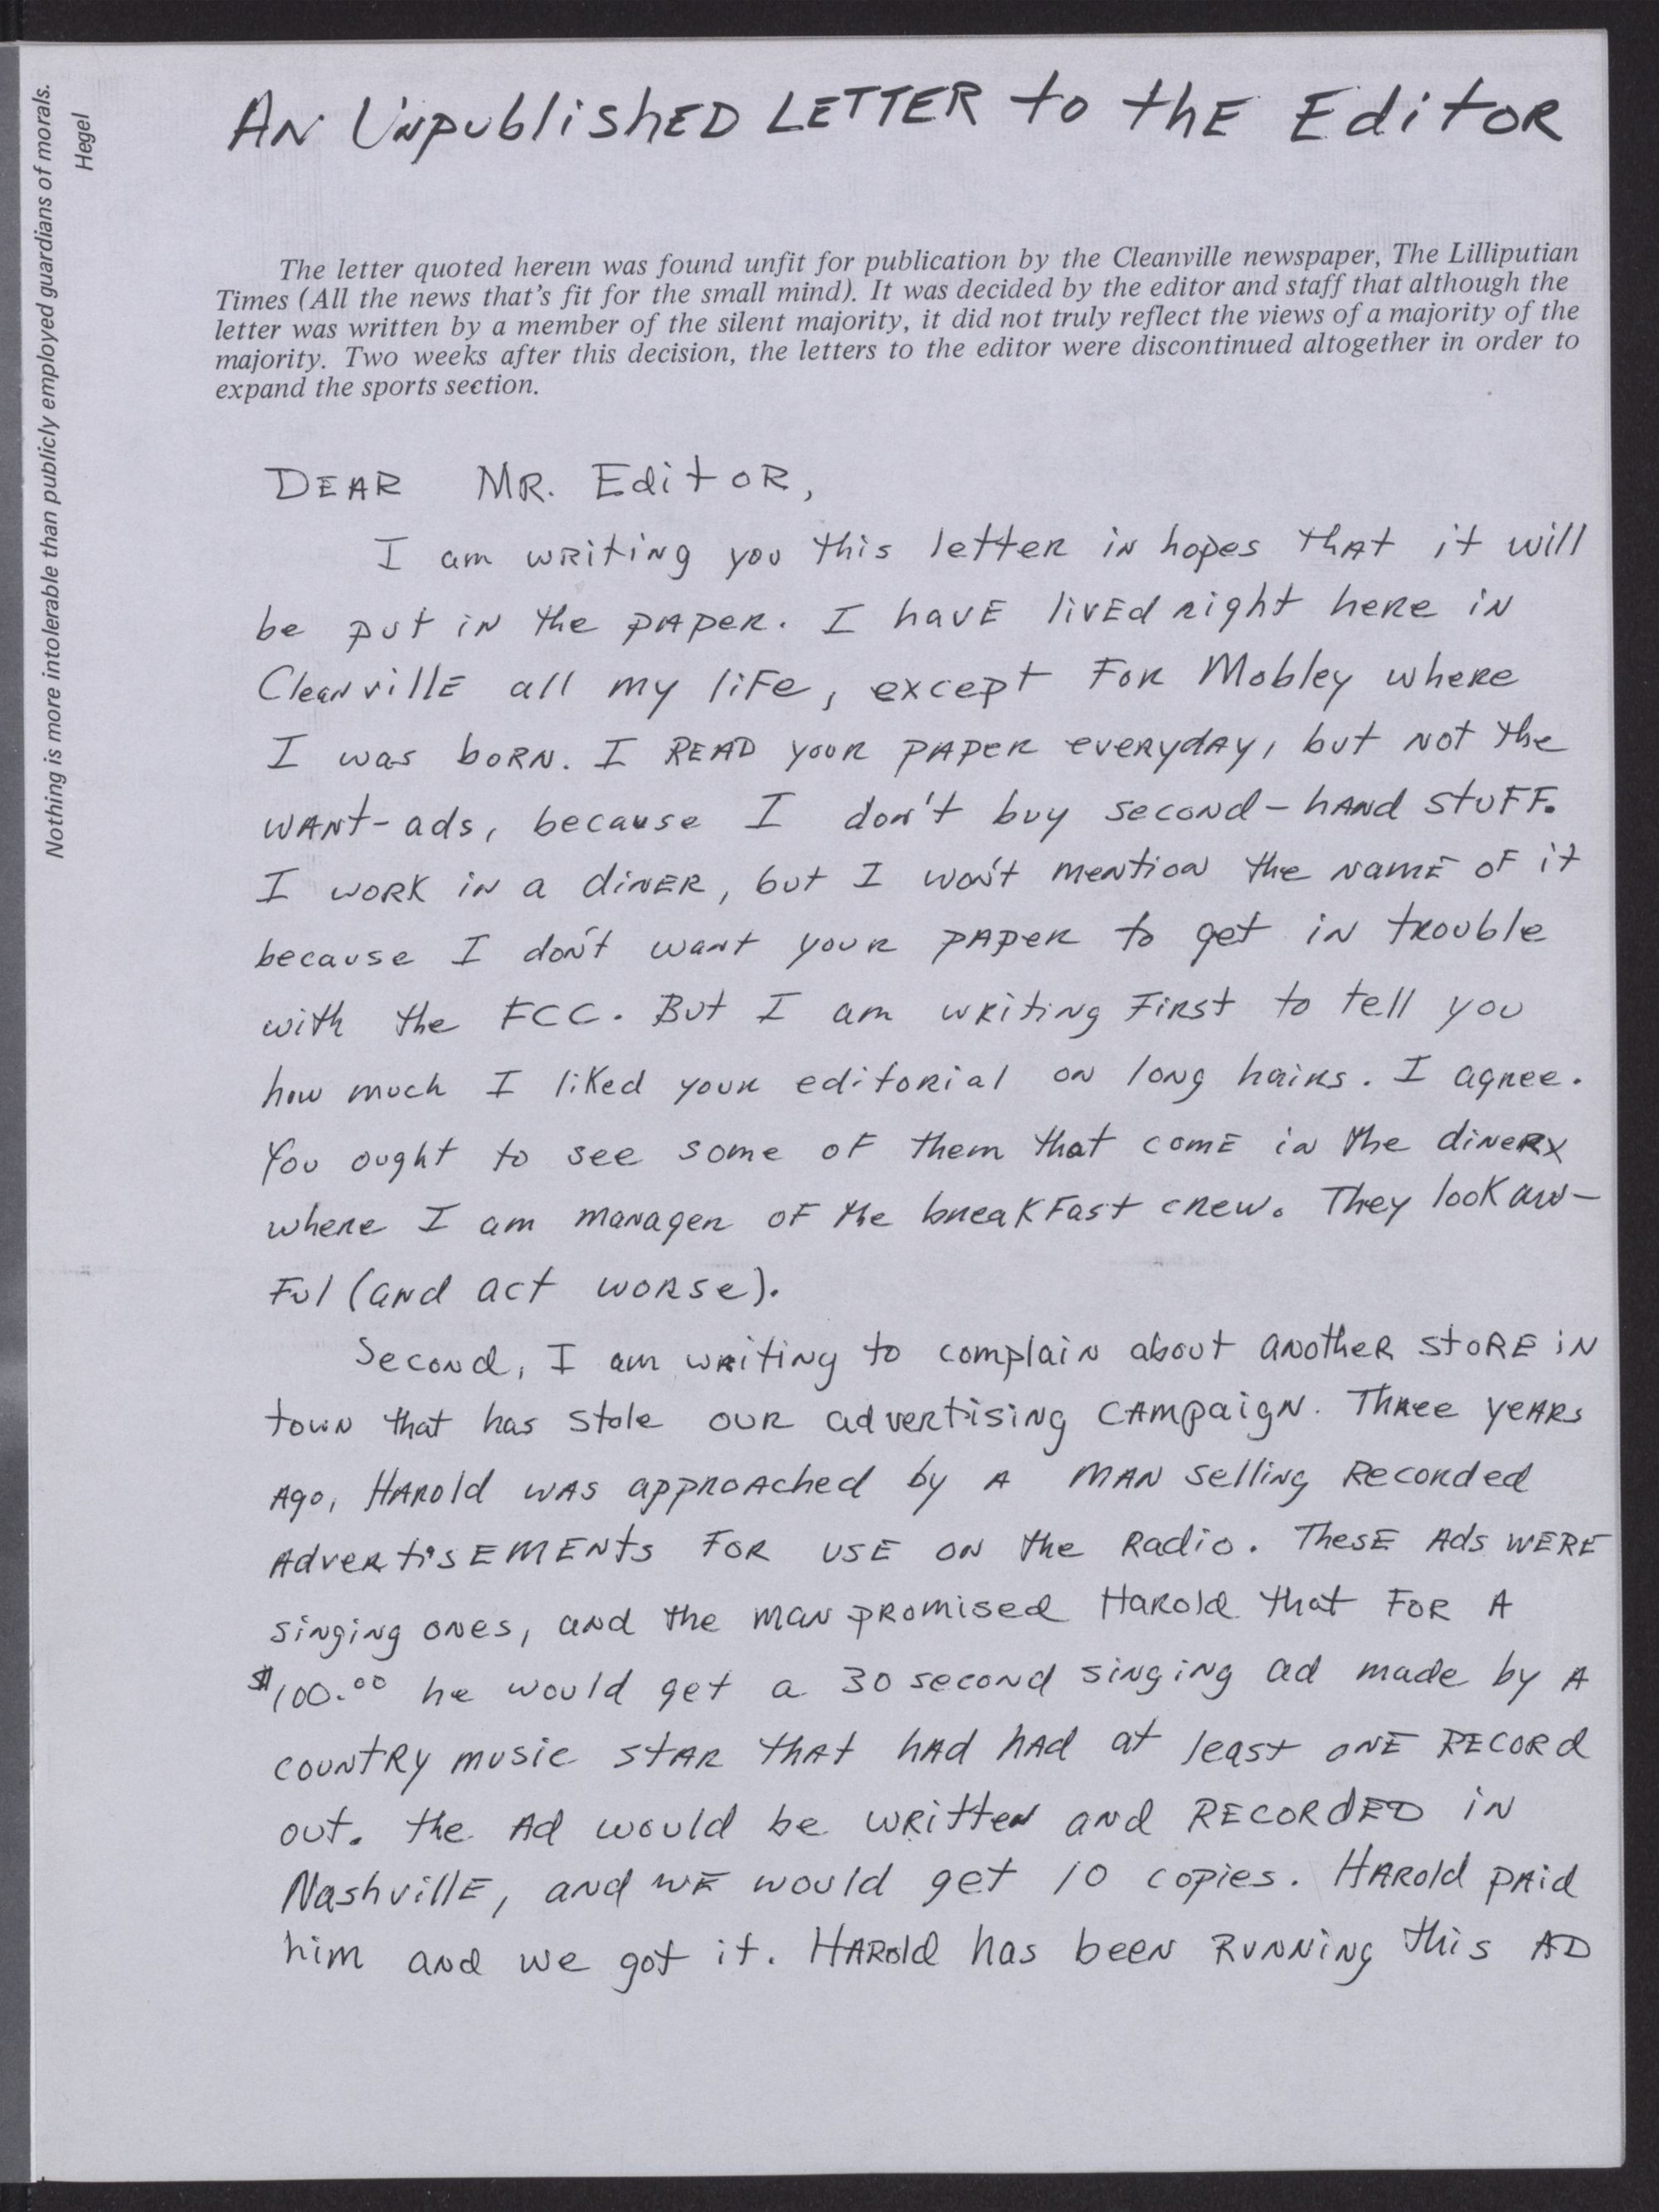 Nothing is more intolerable than publicly employed guardians of morals.
Hegel
AN UNpublishED LETTER to thE EditOR
The letter quoted herein was found unfit for publication by the Cleanville newspaper, The Lilliputian
Times (All the news that's fit for the small mind). It was decided by the editor and staff that although the
letter was written by a member of the silent majority, it did not truly reflect the views of a majority of the
majority. Two weeks after this decision, the letters to the editor were discontinued altogether in order to
expand the sports section.
DEAR MR. EditOR,
I am writing you this letter in hopes that it will
be put in the paper. I have lived right here in
Cleanville all my life, except for Mobley where
I was born. I READ your paper everyday, but not the
want-ads, because I don't buy second-hand stuff.
I work in a diner, but I won't mention the name of it
because I don't want your paper to get in trouble
with the FCC. But I am writing first to tell you
how much I liked your editorial on long hairs. I agree.
You ought to see some of them that come in the dinerx
where I am manager of the breakfast crew. They look aw-
ful (and act worse).
Second, I am writing to complain about another store in
town that has stole our advertising campaign. Three years
ago, Harold was approached by a man selling recorded
advertisements for use on the radio. These ads were
singing ones, and the man promised Harold that for a
$100.00 he would get a 30 second singing ad made by a
country music star that had had at least one record
out. the ad would be written and recorded in
Nashville, and we would get 10 copies. Harold paid
him and we got it. Harold has been running this AD